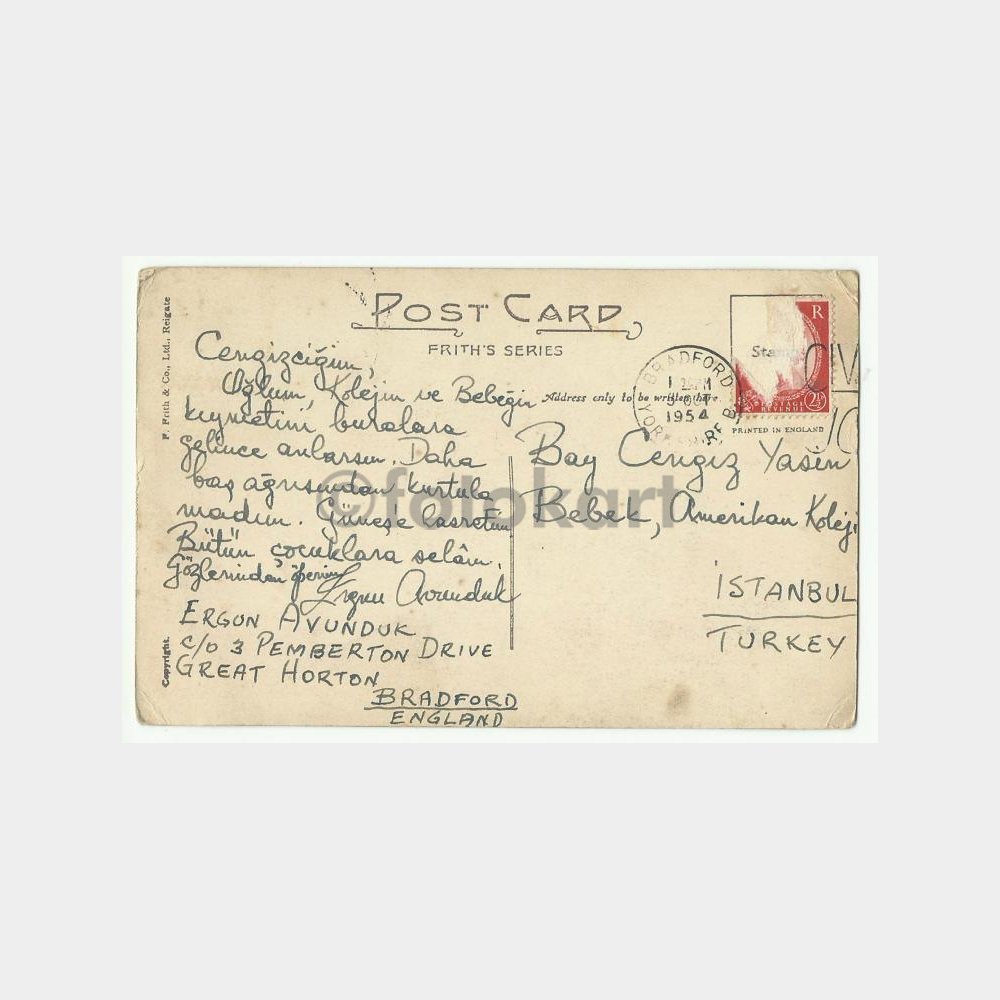 POST CARD
FRITH'S SERIES
F. Frith & Co., Ltd., Reigate
Copyright.
Address only to be written here
Stamp
R
POSTAGE
REVENUE
2½
PRINTED IN ENGLAND
BRADFORD
OCT
1954
Cengizciğim,
Oğlum, Kolejin ve Bebeğin
kıymetini buralara
gelince anlarsın. Daha
baş ağrısından kurtula
madım. Güneşe hasretim
Bütün çocuklara selâm.
Gözlerinden öperim
Ergun Avunduk
ERGUN AVUNDUK
c/o 3 PEMBERTON DRIVE
GREAT HORTON
BRADFORD
ENGLAND
Bay Cengiz Yasin
Bebek, Amerikan Koleji
İSTANBUL
TURKEY
©fotokart